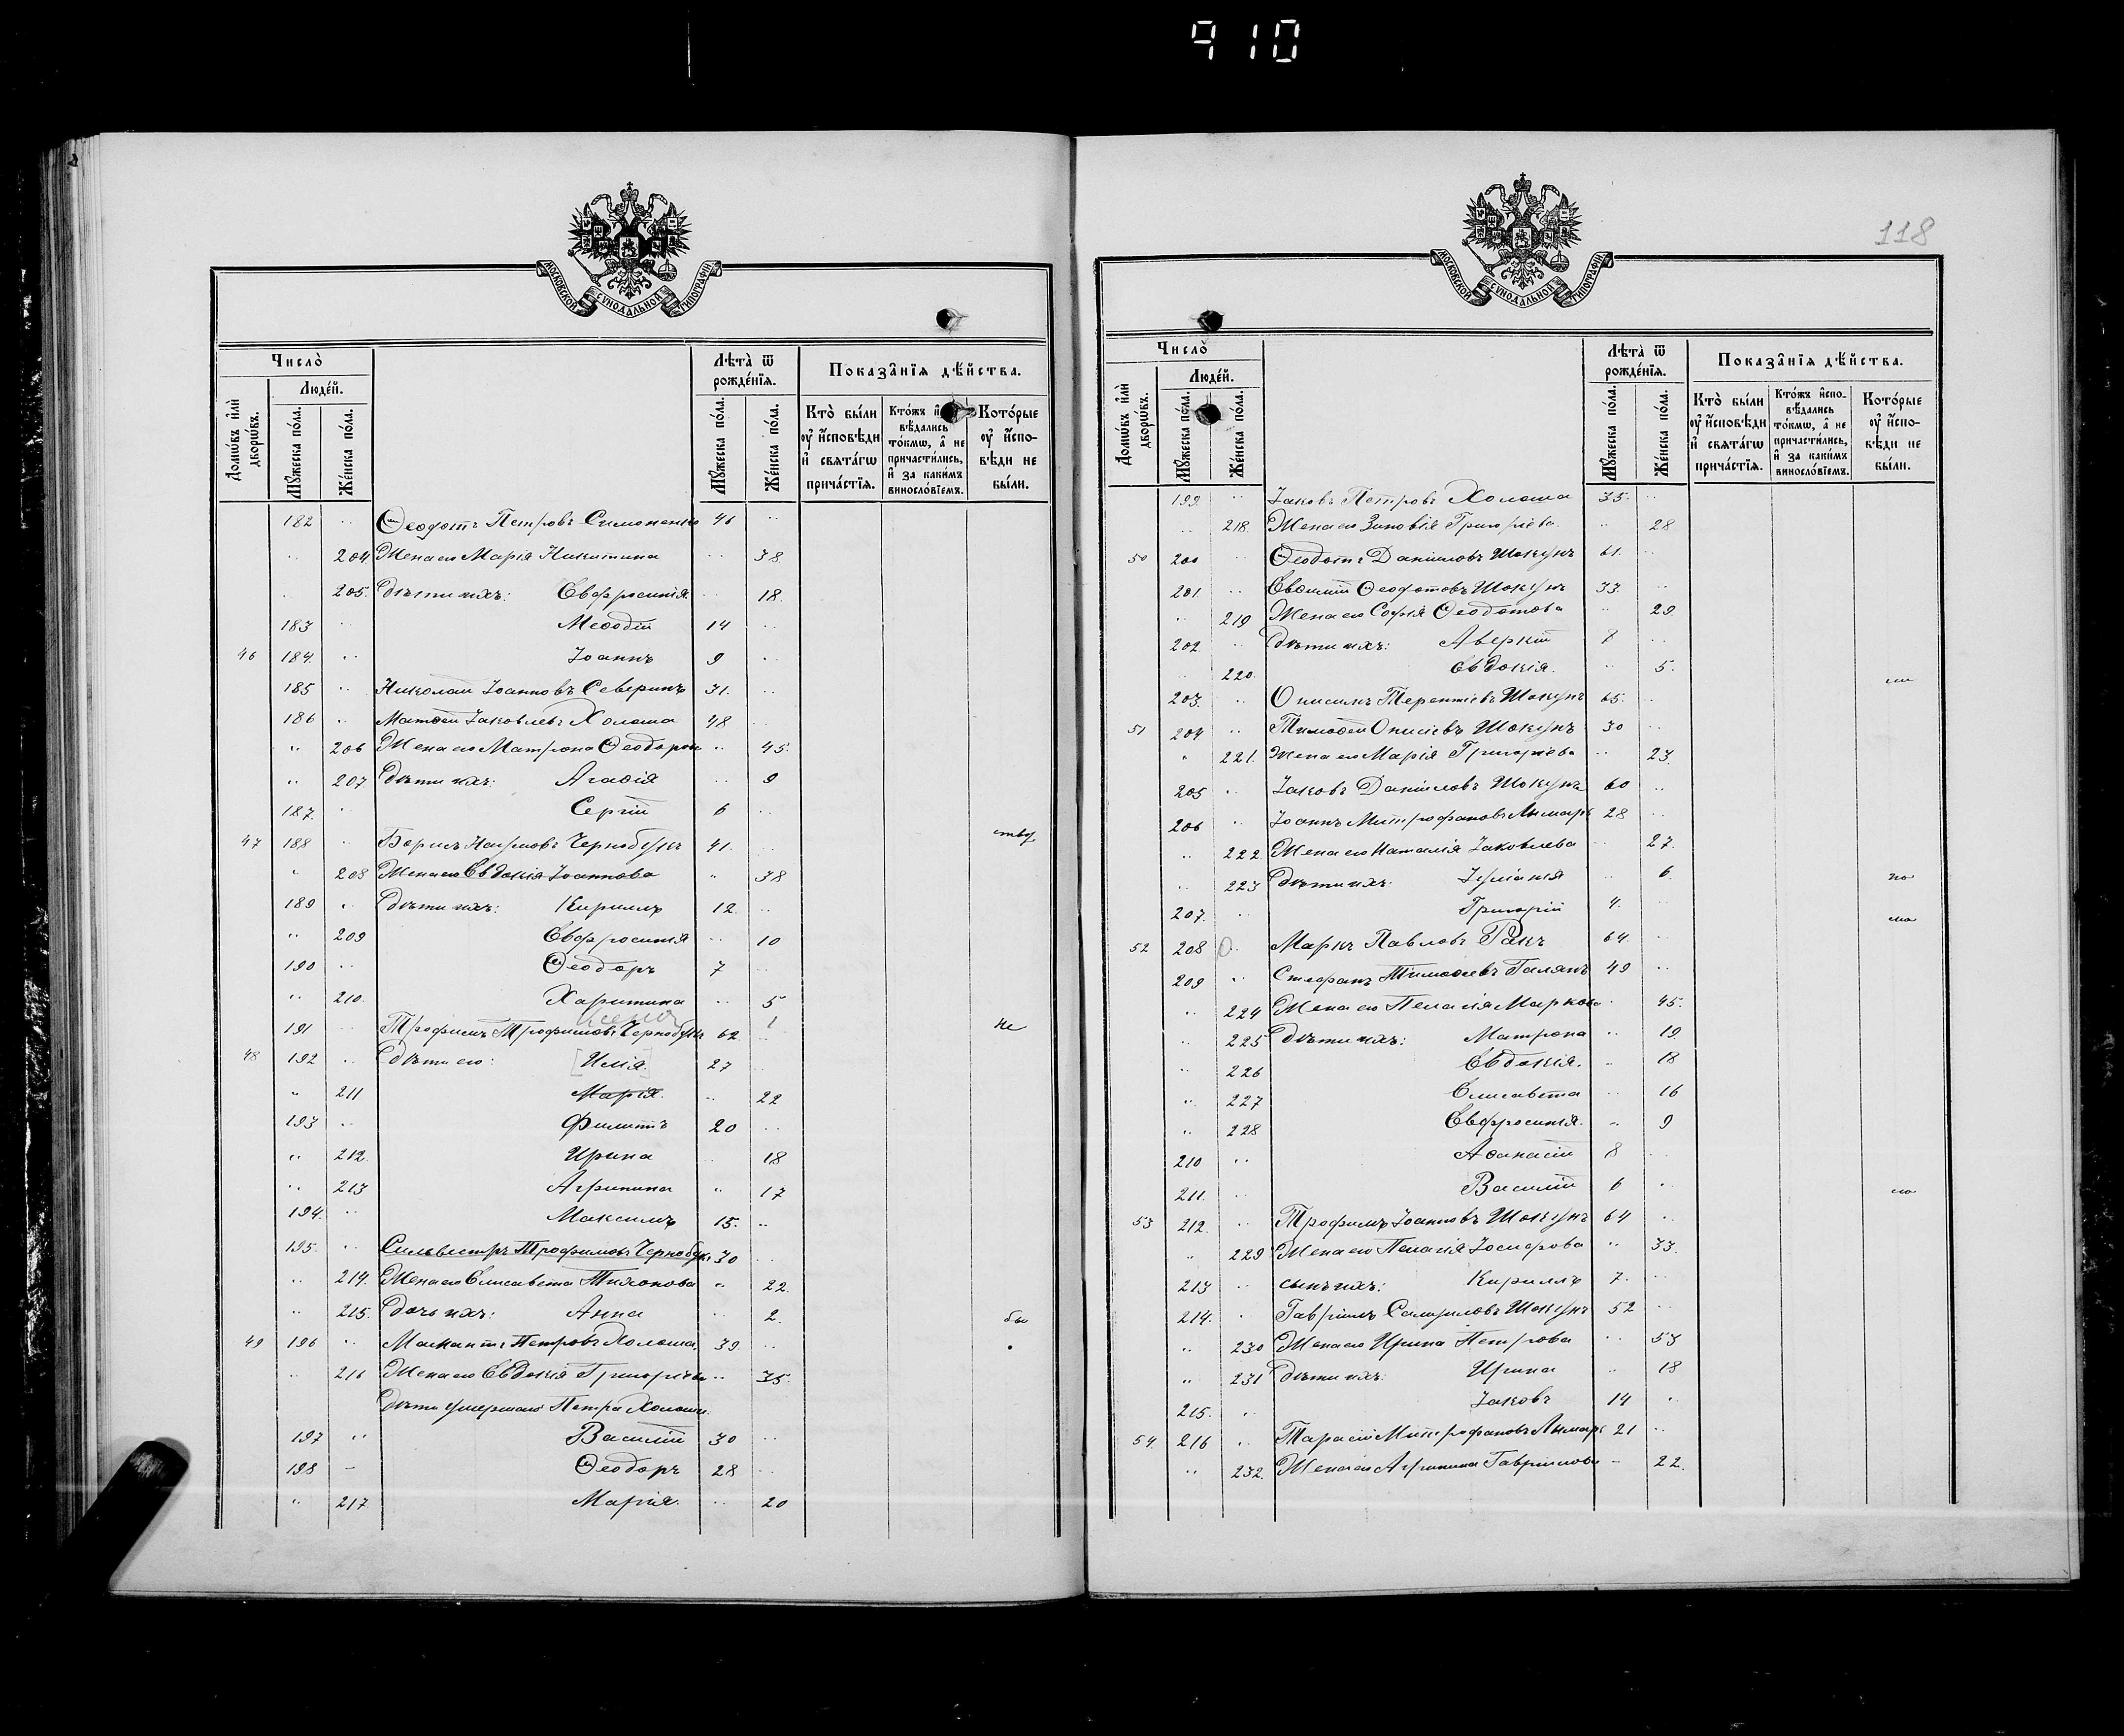 910
МОСКОВСКОЙ СУНОДАЛЬНОЙ ТИПОГРАФІИ
Число̀
Людей.
Домѡвъ и҆лѝ дворѡвъ.
Мꙋжеска по́ла.
Же́нска по́ла.
Лѣта̀ ѿ рожде́нїѧ.
Мꙋжеска по́ла.
Же́нска по́ла.
Показа̑нїѧ дѣ́йства.
Кто̀ бы́ли ᲂу҆ и҆сповѣди и҆ свѧта́гѡ прича́стїѧ.
Кто́жъ и҆сповѣдались то́кмѡ, а҆ не причасти́лись, и҆ за каки́мъ виносло́вїемъ.
Кото́рые ᲂу҆ и҆сповѣди не бы́ли.
182 Ѳеодотъ Петровъ Симоненко 46
204 Жена его Марія Никитина 38
205. Дѣти ихъ: Евфросинія. 18.
183 Меѳодій 14
46 184. Іоаннъ 9
185 Николай Іоанновъ Северинъ 31.
186 Матѳей Іаковлевъ Холоша 48
206 Жена его Матрона Ѳеодоров 45.
207 Дѣти ихъ: Агаѳія 9
187. Сергій 6
47 188 Борисъ Наумовъ Чернобукъ 41.
208 Жена его Евдокія Іоаннова 38
189 Дѣти ихъ: Кириллъ 12.
209 Евфросинія 10
190 Ѳеодоръ 7
210. Харитина 5
191 Трофимъ Трофимовъ Чернобукъ 62 1 Не
48 192 Дѣти его: [Илія.] 27
211 Марія. 22
193 Филиппъ 20
212. Ирина 18
213 Агрипина 17
194. Максимъ 15.
195. Сильвестръ Трофимовъ Чернобук. 30
214. Жена его Елисавета Тихонова 22.
215. Дочь ихъ: Анна 2.
49 196 Петровъ Холоша 39.
216 Жена его Евдокія Григорьева 35.
Дѣти умершаго Петра Холоши.
197 Василій 30
198 Ѳеодоръ 28
217 Марія. 20
118
МОСКОВСКОЙ СУНОДАЛЬНОЙ ТИПОГРАФІИ
Число̀
Людей.
Домѡвъ и҆лѝ дворѡвъ.
Мꙋжеска по́ла.
Же́нска по́ла.
Лѣта̀ ѿ рожде́нїѧ.
Мꙋжеска по́ла.
Же́нска по́ла.
Показа̑нїѧ дѣ́йства.
Кто̀ бы́ли ᲂу҆ и҆сповѣди и҆ свѧта́гѡ прича́стїѧ.
Кто́жъ и҆сповѣдались то́кмѡ, а҆ не причасти́лись, и҆ за каки́мъ виносло́вїемъ.
Кото́рые ᲂу҆ и҆сповѣди не бы́ли.
199. Іаковъ Петровъ Холоша 35.
218. Жена его Зиновія Григоріева. 28
50 200 Ѳеодотъ Даніиловъ Шокунъ 61.
201 Евѳимій Ѳеодотовъ Шокунъ 33.
219 Жена его Софія Ѳеодотова 29.
202 Дѣти ихъ: Аверкій 8
220. Евдокія. 5.
203. Онисимъ Терентіевъ Шокунъ 65.
51 204 Тимоѳей Онисіевъ Шокунъ 30
221. Жена его Марія Григоріева 23.
205 Іаковъ Даніиловъ Шокунъ 60
206 Іоаннъ Митрофановъ Лымарь 28
222. Жена его Наталія Іаковлева 27.
223 Дѣти ихъ: Іуліанія 6
207. Григорій 4.
52 208 Маркъ Павловъ Ракъ 64.
209 Стефанъ Тимоѳеевъ Галянъ 49
224 Жена его Пелагія Маркова 45.
225 Дѣти ихъ: Матрона 19.
226 Евдокія. 18
227 Елисавета 16
228 Евфросинія. 9
210 Аѳанасій 8
211. Василій 6
53 212. Трофимъ Іоанновъ Шокунъ 64
229 Жена его Пелагія Іосифова 33.
213 сынъ ихъ: Кириллъ 7.
214. Гавріилъ Самуиловъ Шокунъ 52
230 Жена его Ирина Петрова 53
231 Дѣти ихъ: Ирина 18
215. Іаковъ 14
54. 216 Тарасій Митрофановъ Лымарь 21
232. Жена его Агрипина Гавріилова 22.